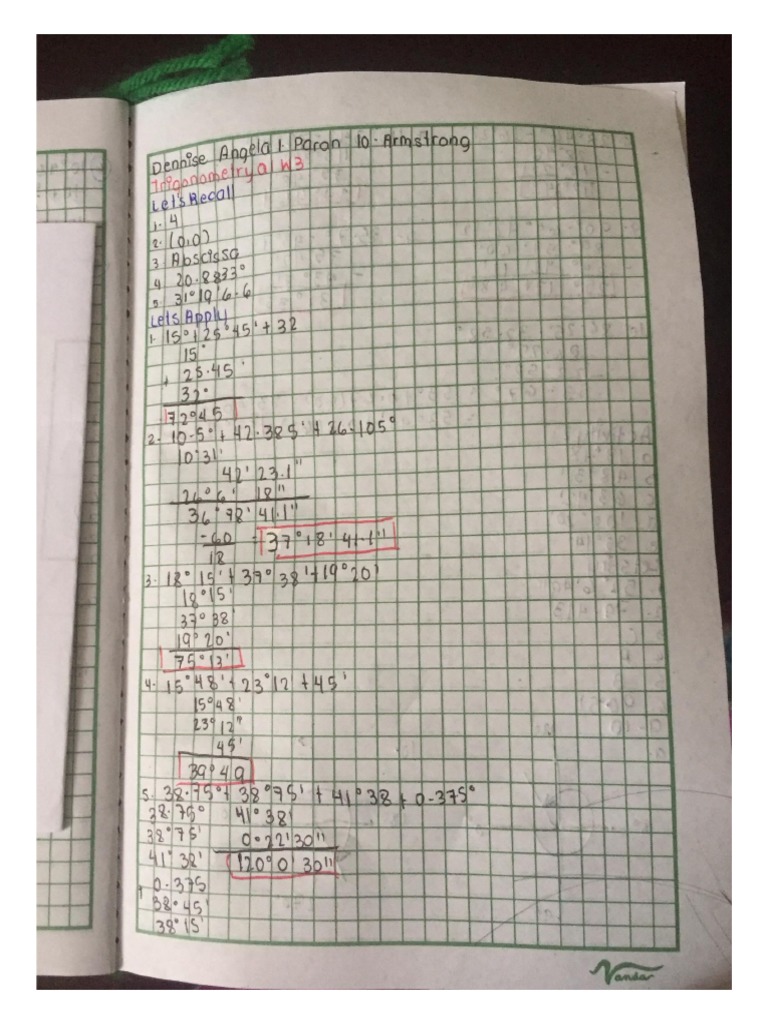 Dennise Angela I. Paron 10-Armstrong
Trigonometry Q1 W3
Let's Recall
1. 4
2. (0,0)
3. Abscissa
4. 20.8833°
5. 31°19'6.6
Lets Apply
1. 15°+25°45'+32
15°
+ 25.45'
32°
72°45
2. 10.5°+42.385'+26.105°
10°31'
42' 23.1"
26°6' 18"
36°78'41.1"
-60 = 37°18'41.1"
18
3. 18°15'+37°38'+19°20'
18°15'
37°38'
19°20'
75°13'
4. 15°48'+23°12+45'
15°48'
23°12"
45'
39°49
5. 38.75°+38°75'+41°38+0.375°
38.75° 41°38'
38°75' 0.22'30"
41°38' 120°0'30"
+ 0.375
38°45'
38°15'
Vanda